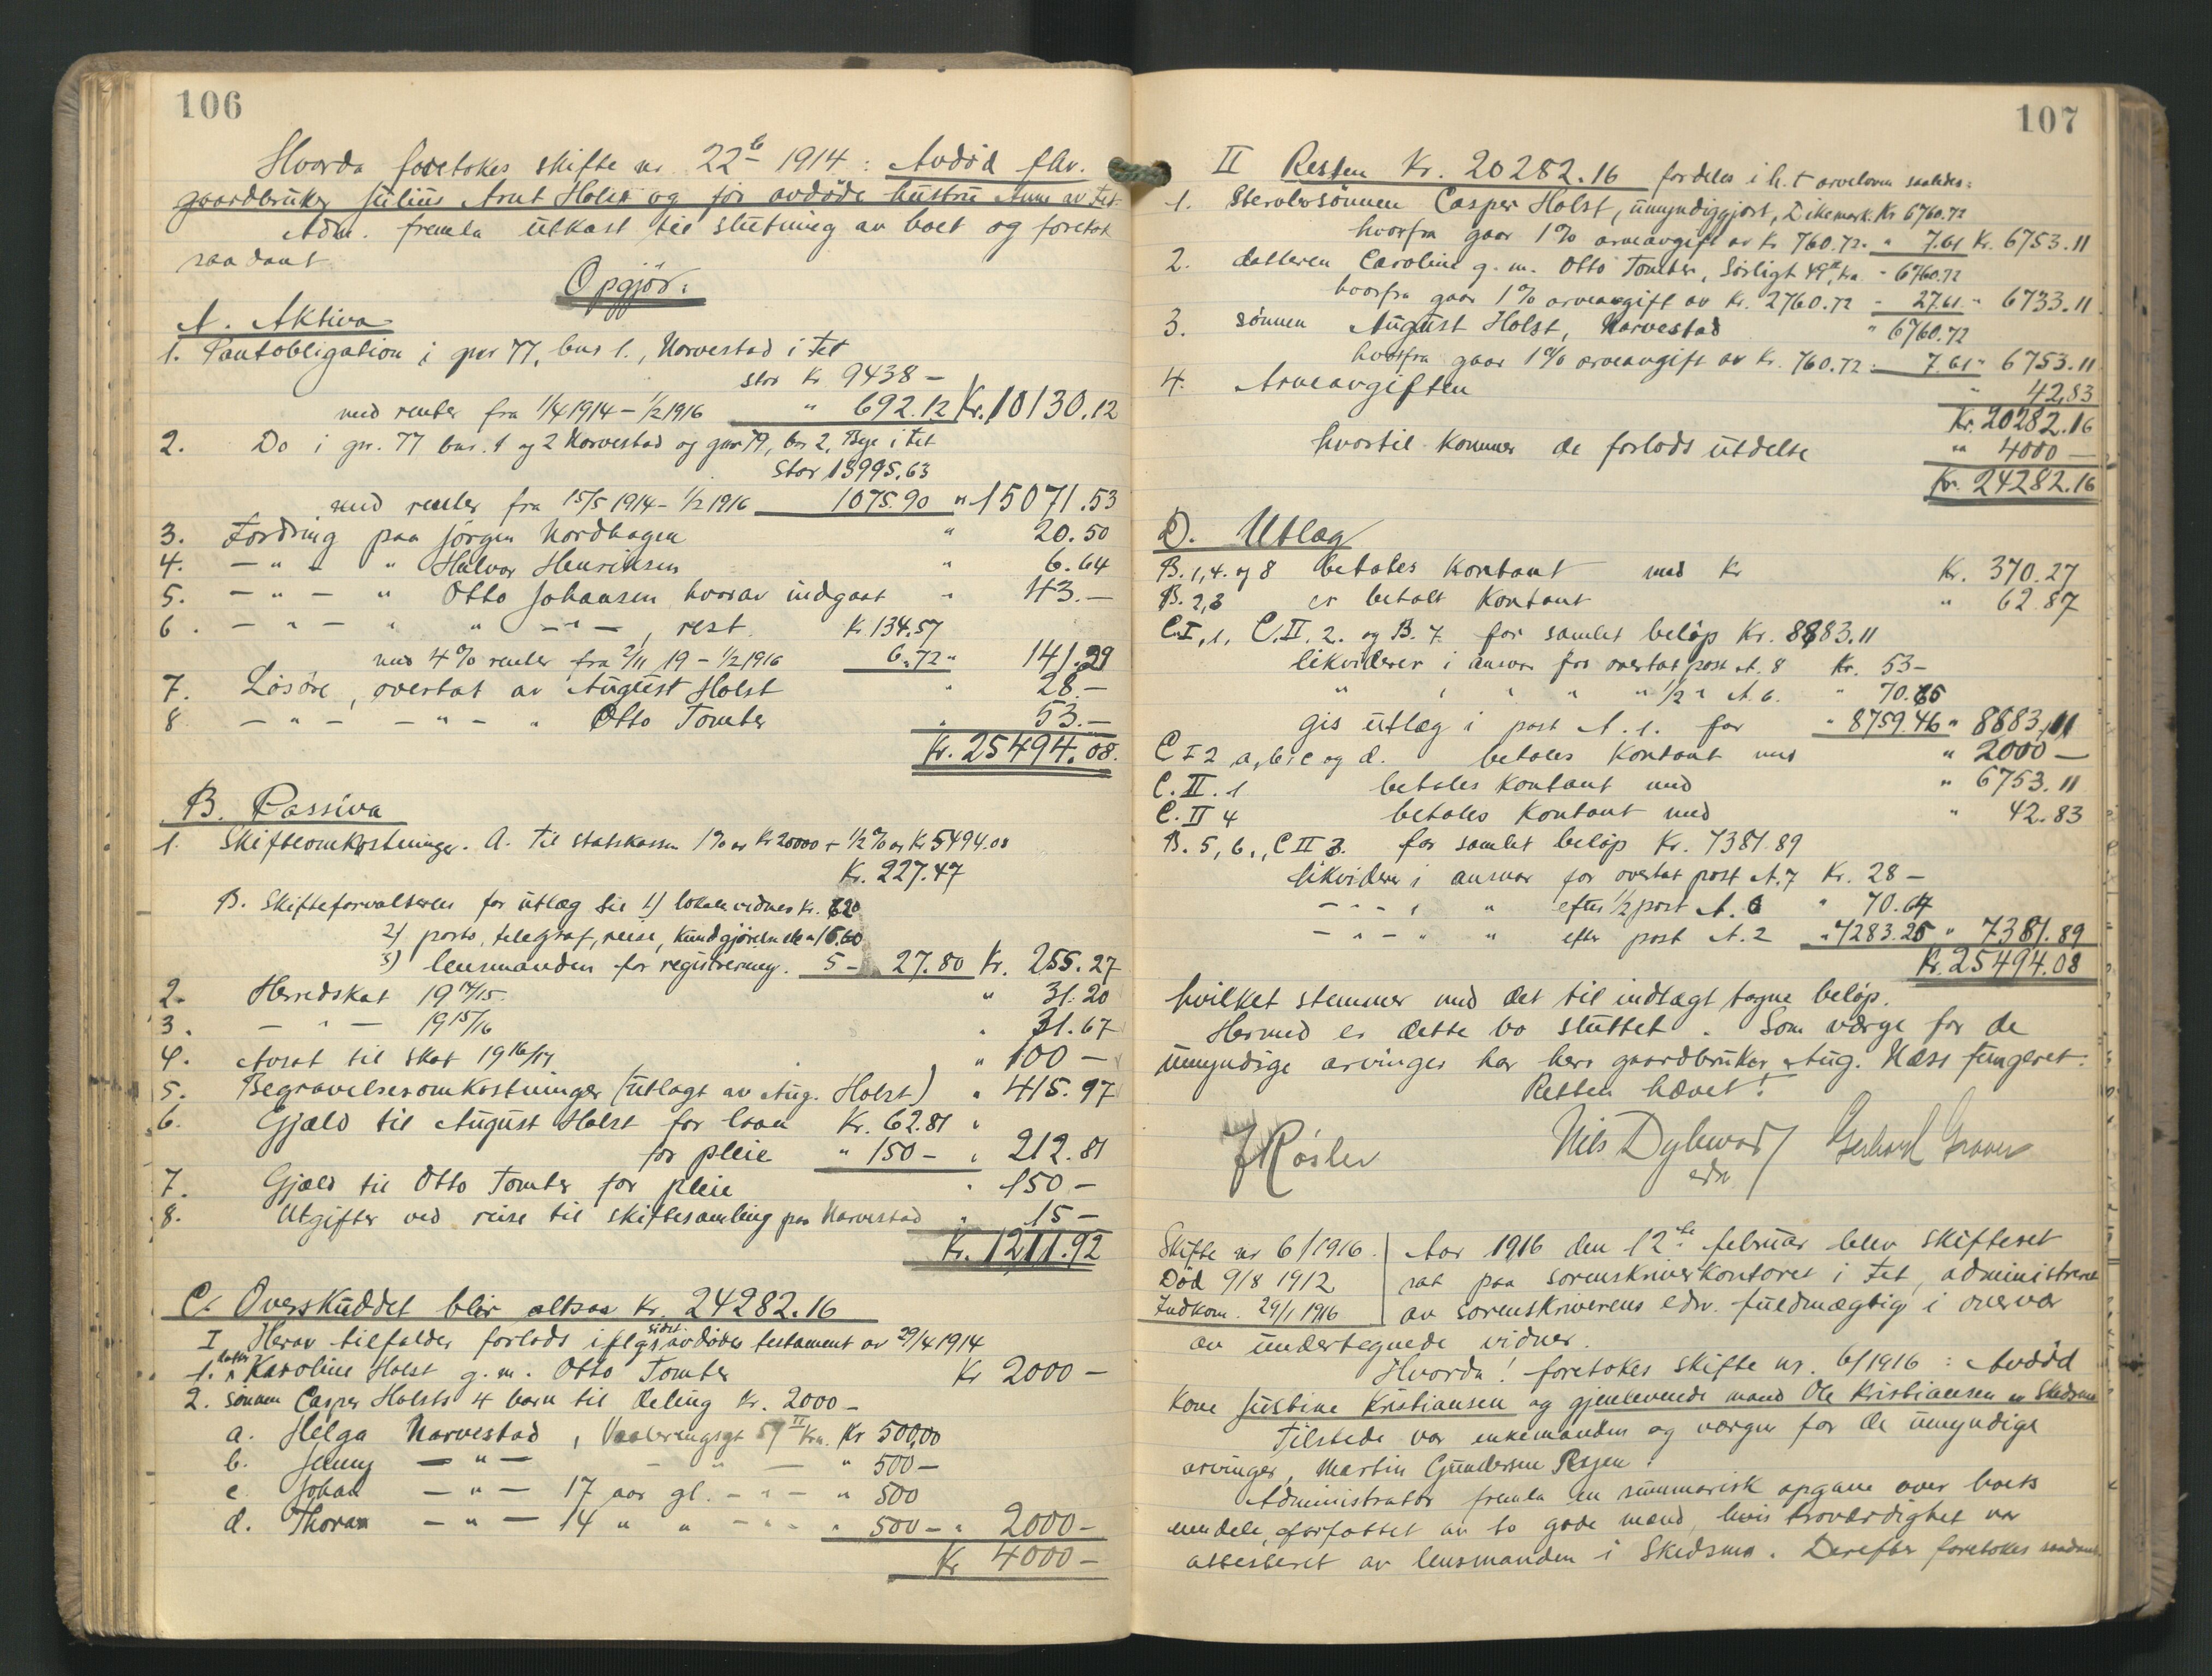 106
Hvorda foretokes skifte nr. 22b 1914: Avdød fhv.
gaardbruker Julius Arnt Holst og før avdøde hustru Anne av Fet
Adm. fremla utkast til slutning av boet og foretok
saadant
Opgjør:
A. Aktiva
1. Pantobligation i gnr 77, bnr 1., Narvestad i Fet
stor Kr. 9438 –
med renter fra 1/4 1914 – 1/2 1916 " 692.12 Kr. 10130.12
2. Do i gnr. 77 bnr. 1 og 2 Narvestad og gnr 79, bnr 2, Bye i Fet
stor 13995.63
med renter fra 15/5 1914 – 1/2 1916 1075.90 " 15071.53
3. Fordring paa Jörgen Nordhagen " 20.50
4. – " – " Halvor Henriksen " 6.64
5. – " – " Otto Johansen hvorav indgaat " 43.–
6. – " – " " – " – , rest Kr. 134.57
med 4% renter fra 2/11 19 – 1/2 1916 6.72 " 141.29
7. Lösöre, overtat av August Holst " 28.–
8. – " – – " – " Otto Tomter " 53.–
Kr. 25494.08.
B. Passiva
1. Skifteomkostninger. A. til statskassen 1% av Kr 20000 + 1/2% av Kr 5494.08
Kr. 227.47
B. Skifteforvalteren for utlæg til 1) lokale vidner kr. 6.20
2) porto, telegraf, reise, kundgjörelse " 16.60
3) lensmanden for registrering. 5 – 27.80 Kr. 255.27
2. Herredskat 19 14/15 " 31.20
3. – " – 19 15/16 " 31.67
4. Avsat til skat 19 16/17 " 100 –
5. Begravelsesomkostninger (utlagt av Aug. Holst) " 415.97
6. Gjæld til August Holst for laan Kr. 62.81 "
for pleie " 150 – " 212.81
7. Gjæld til Otto Tomter for pleie " 150 –
8. Utgifter ved reise til skiftesamling paa Narvestad " 15 –
Kr. 1211.92
C. Overskuddet blir altsaa kr. 24282.16
I Herav tilfalder forlods iflg sidst avdødes testament av 29/4 1914
1. datter Karoline Holst g. m. Otto Tomter Kr 2000 –
2. sønnen Casper Holsts 4 barn til deling Kr. 2000 –
a. Helga Narvestad, Vaaleringsgt 57 II Kra. Kr 500,00
b. Jenny – " – – " – " 500 –
c. Johan – " – 17 aar gl. – " – " 500
d. Thoran – " – 14 " " – " – " 500 – " 2000 –
Kr 4000 –
107
II Resten Kr. 20282.16 fordeles i h. t arveloven saaledes:
1. Stervbosønnen Casper Holst, umyndiggjort, Dikemark. Kr 6760.72
hvorfra gaar 1% arveavgift av Kr 760.72. " 7.61 Kr. 6753.11
2. datteren Caroline g. m. Otto Tomter, Sörligt 49 II, Kra. " 6760.72
hvorfra gaar 1% arveavgift av Kr. 2760.72 " 27.61 " 6733.11
3. sönnen August Holst, Narvestad " 6760.72
hvorfra gaar 1% arveavgift av Kr. 760.72 " 7.61 " 6753.11
4. Arveavgiften " 42,83
Kr. 20282.16
hvortil kommer de forlods utdelte " 4000 –
Kr. 24282.16
D. Utlæg
B. 1, 4. og 8 betales kontant med kr Kr. 370.27
B. 2, 3 er betalt kontant " 62.87
C. I, 1, C. II. 2. og B. 7. for samlet beløp Kr. 8883.11
likviderer i ansvar for overtat post A. 8 Kr. 53 –
" " " " " 1/2 " A. 6. " 70.65
gis utlæg i post A. 1. for " 8759.46 " 8883,11
C I 2 a, b, c og d. betales kontant med " 2000 –
C. II. 1 betales kontant med " 6753.11
C. II 4 betales kontant med " 42.83
B. 5, 6., C II 3. for samlet beløp Kr. 7381.89
likviderer i ansvar for overtat post A. 7 Kr. 28 –
– " – " " efter 1/2 post A. 6 " 70.64
– " – " " efter post A. 2 " 7283.25 " 7381.89
Kr. 25494.08
hvilket stemmer med det til indtægt tagne beløp.
Hermed er dette bo sluttet. Som værge for de
umyndige arvinger har herr gaardbruker Aug. Næss fungeret.
Retten hævet!
Nils Dybwad
edv.
Skifte nr 6/1916.
Død 9/8 1912
Indkom. 29/1 1916
Aar 1916 den 12te februar blev skifteret
sat paa sorenskriverkontoret i Fet, administreret
av sorenskriverens edsv. fuldmægtig i overvær
av undertegnede vidner.
Hvorda! foretokes skifte nr. 6/1916: Avdød
kone Justine Kristiansen og gjenlevende mand Ole Kristiansen av Skedsmo
Tilstede var enkemanden og værgen for de umyndige
arvinger, Martin Gundersen
Administrator fremla en summarisk opgave over boets
eiendele, forfattet av to gode mænd, hvis troværdighet var
attesteret av lensmanden i Skedsmo. Derefter foretokes saadant